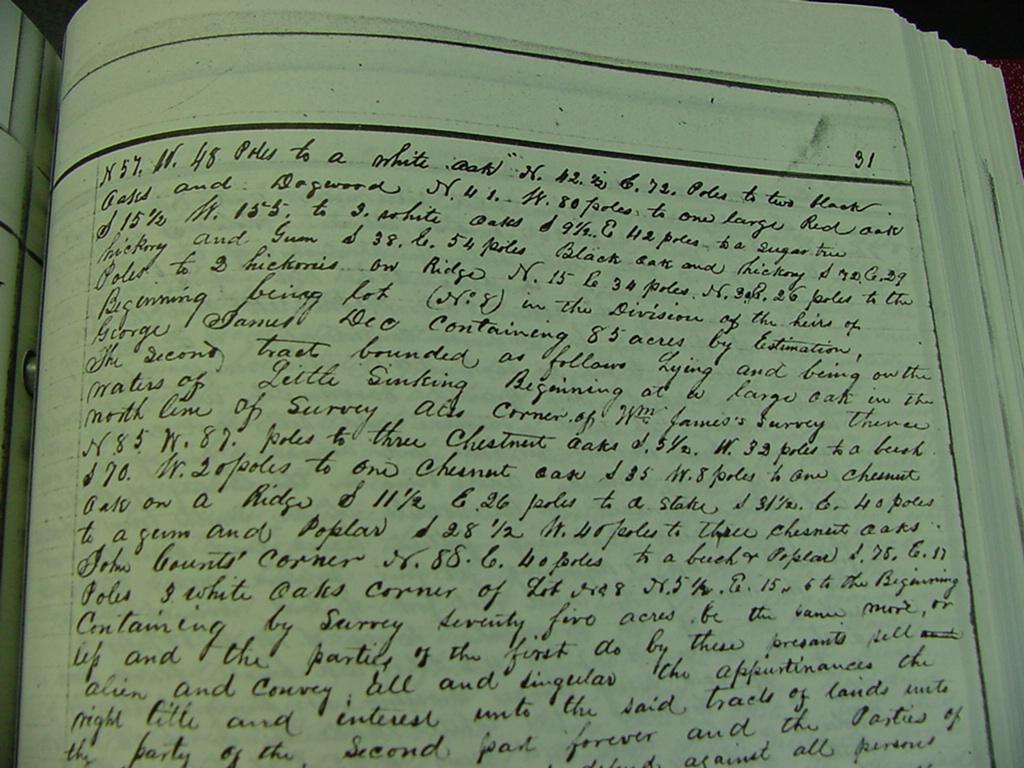 31
N 57. W. 48 Poles to a white oak N. 42. ½ E. 72. Poles to two black
oaks and Dogwood N. 41. W. 80 poles to one large Red oak
S 15½ W. 155. to 3. white oaks S 9½. E 42 poles to a Sugar tree
hickory and Gum S 38. E. 54 poles Black oak and hickory S 72. E. 29
Poles to 2 hickories on Ridge N. 15 E 34 poles. N. E. 26 poles to the
Beginning being lot (No 8) in the Division of the heirs of
George James Dec Containing 85 acres by Estimation,
The second tract bounded as follows Lying and being on the
waters of Little Sinking Beginning at a large oak in the
north line of Survey Also Corner of Wm James's Survey thence
N 85 W. 87. poles to three Chestnut oaks S. 5½. W. 32 poles to a beech
S 70. W. 20 poles to one Chesnut oak S 35 W. 8 poles to one Chesnut
oak on a Ridge S 11½ E. 26 poles to a stake S 31½. E. 40 poles
to a gum and Poplar S 28½ W. 40 poles to three chesnut oaks.
John Counts' corner N. 88. E. 40 poles to a beech & Poplar S. 78. E. 17
Poles 3 white Oaks corner of Lot No 8 N. 5½. E. 15. 6 to the Beginning
Containing by Survey seventy five acres be the same more, or
less and the parties of the first do by these presants sell
alien and Convey, all and singular the appurtinances the
right title and interest unto the said tracts of lands unto
the party of the Second part forever and the Parties of
defend against all persons